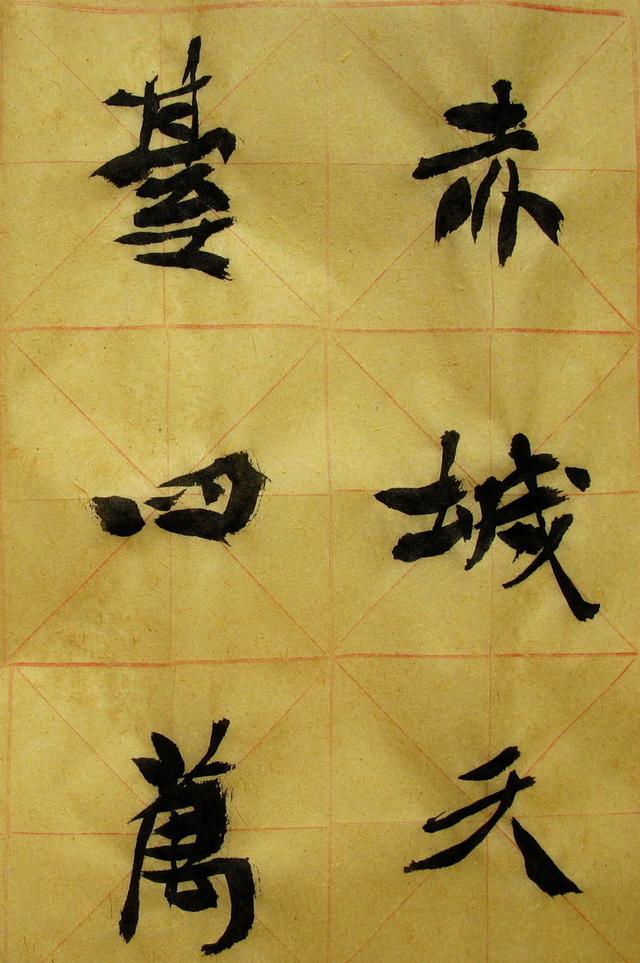 赤城天
臺四萬